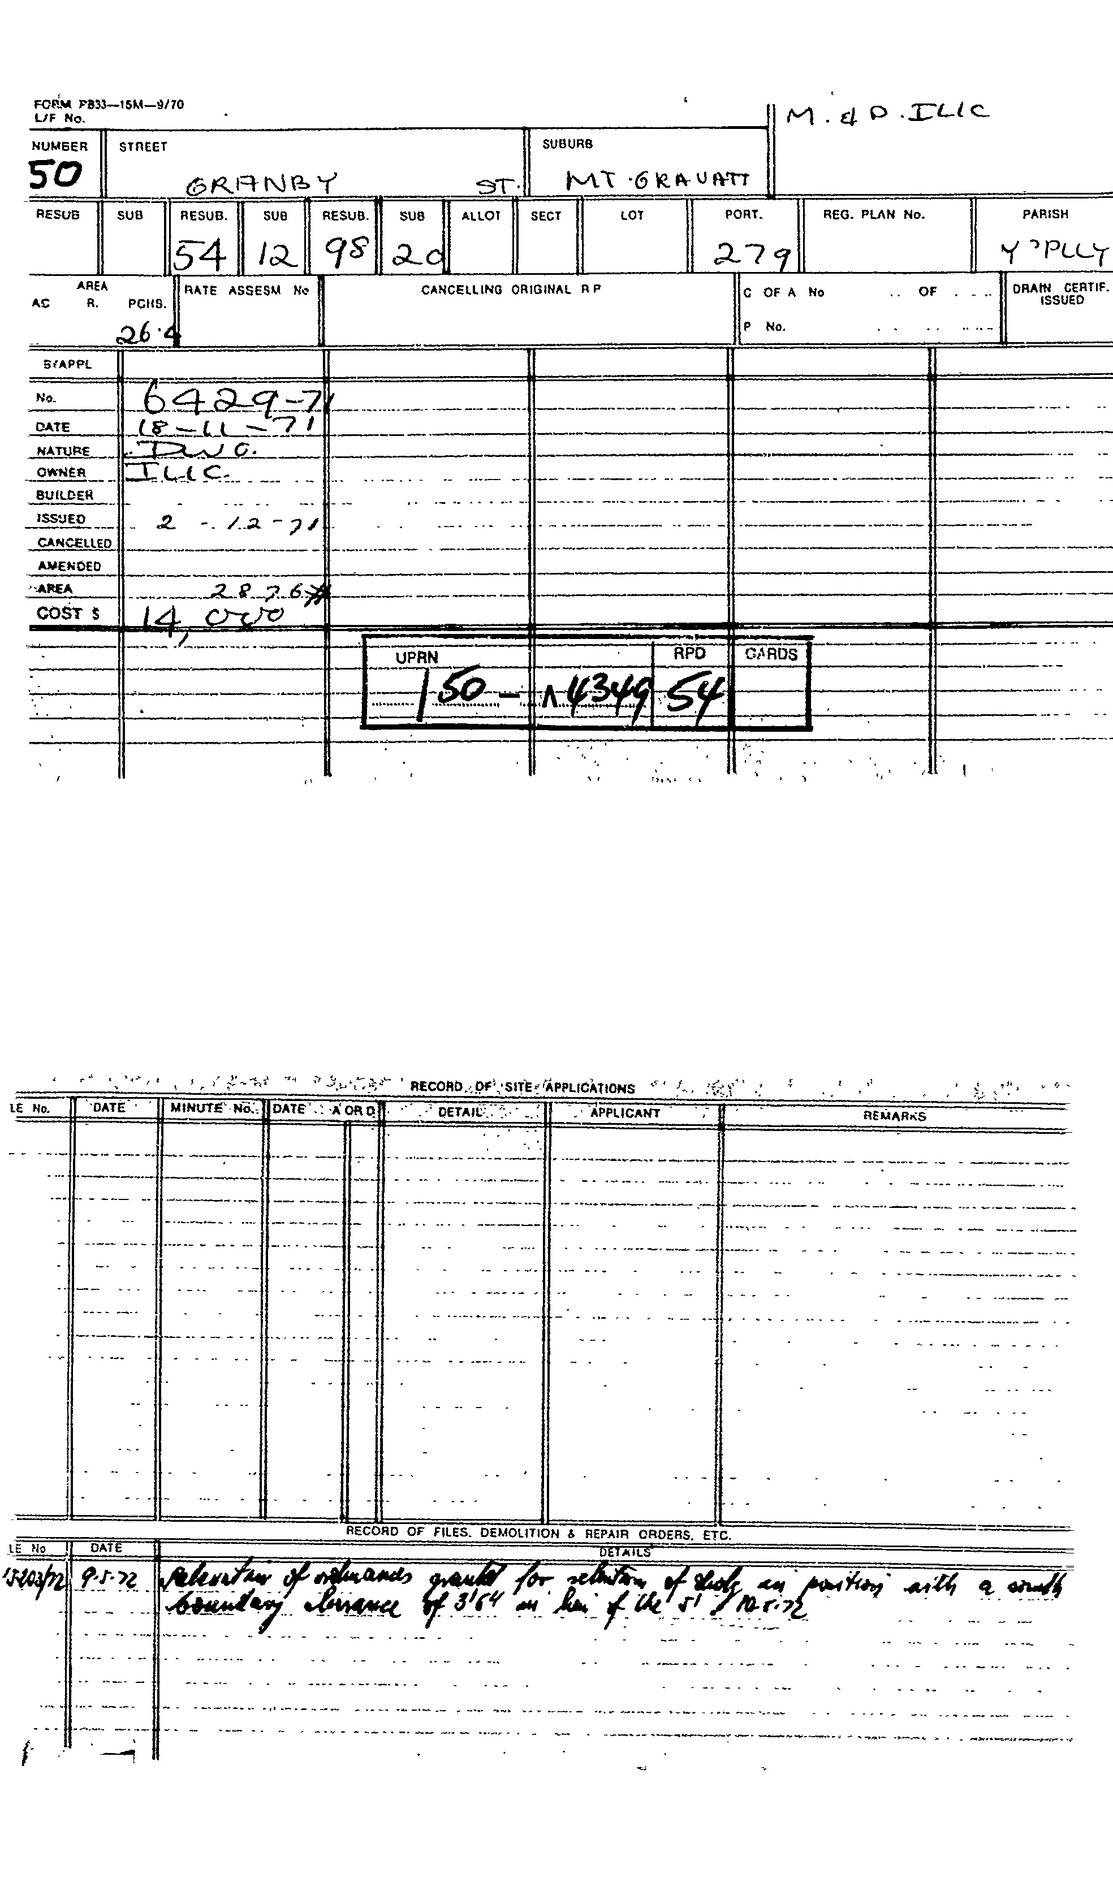 FORM PB33—15M—9/70
L/F No.
M. & D. ILIC
NUMBER STREET SUBURB
50 GRANBY ST. MT. GRAVATT
RESUB SUB RESUB. SUB RESUB. SUB ALLOT SECT LOT PORT. REG. PLAN No. PARISH
54 12 98 20 279 Y'PLLY
AREA RATE ASSESM No CANCELLING ORIGINAL R P C OF A No OF DRAIN CERTIF. ISSUED
AC R. PCHS.
26.4 P No.
B/APPL
No. 6429-71
DATE 18-11-71
NATURE DWG.
OWNER ILIC.
BUILDER
ISSUED 2-12-71
CANCELLED
AMENDED
AREA 2876
COST $ 14,000
UPRN RPD CARDS
150 - 14349 54
RECORD OF SITE APPLICATIONS
LE No. DATE MINUTE No. DATE A OR D DETAIL APPLICANT REMARKS
RECORD OF FILES, DEMOLITION & REPAIR ORDERS, ETC.
LE No DATE DETAILS
9.5.72 Relaxation of ordinances granted for retention of dwlg in position with a south
boundary clearance of 3'6" in lieu of the 5' 10.5.72